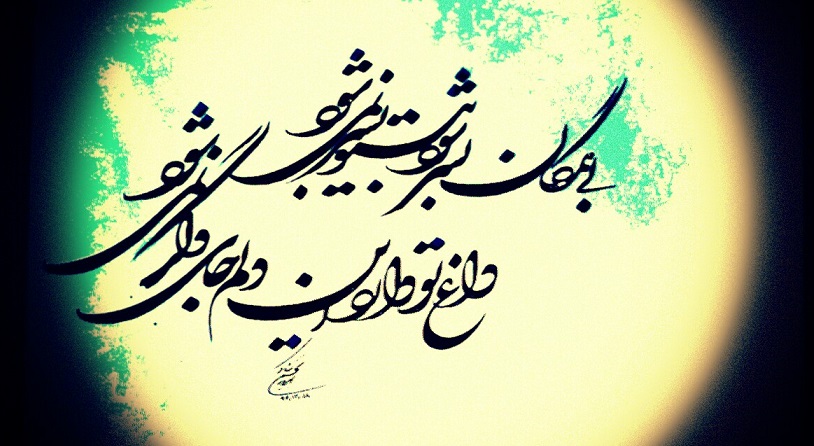 بی همگان بسر شود بیتو بسر نمی شود
داغ تو دارد این دلم جای دگر نمی شود